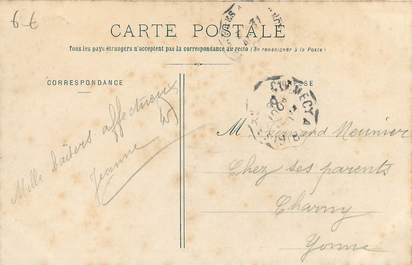 6 €
CARTE POSTALE
Tous les pays étrangers n'acceptent pas la correspondance au recto (Se renseigner à la Poste)
CORRESPONDANCE
Mille baisers affectueux
Jeanne
CLAMECY
M Meunier
Chez ses parents
Charny
Yonne